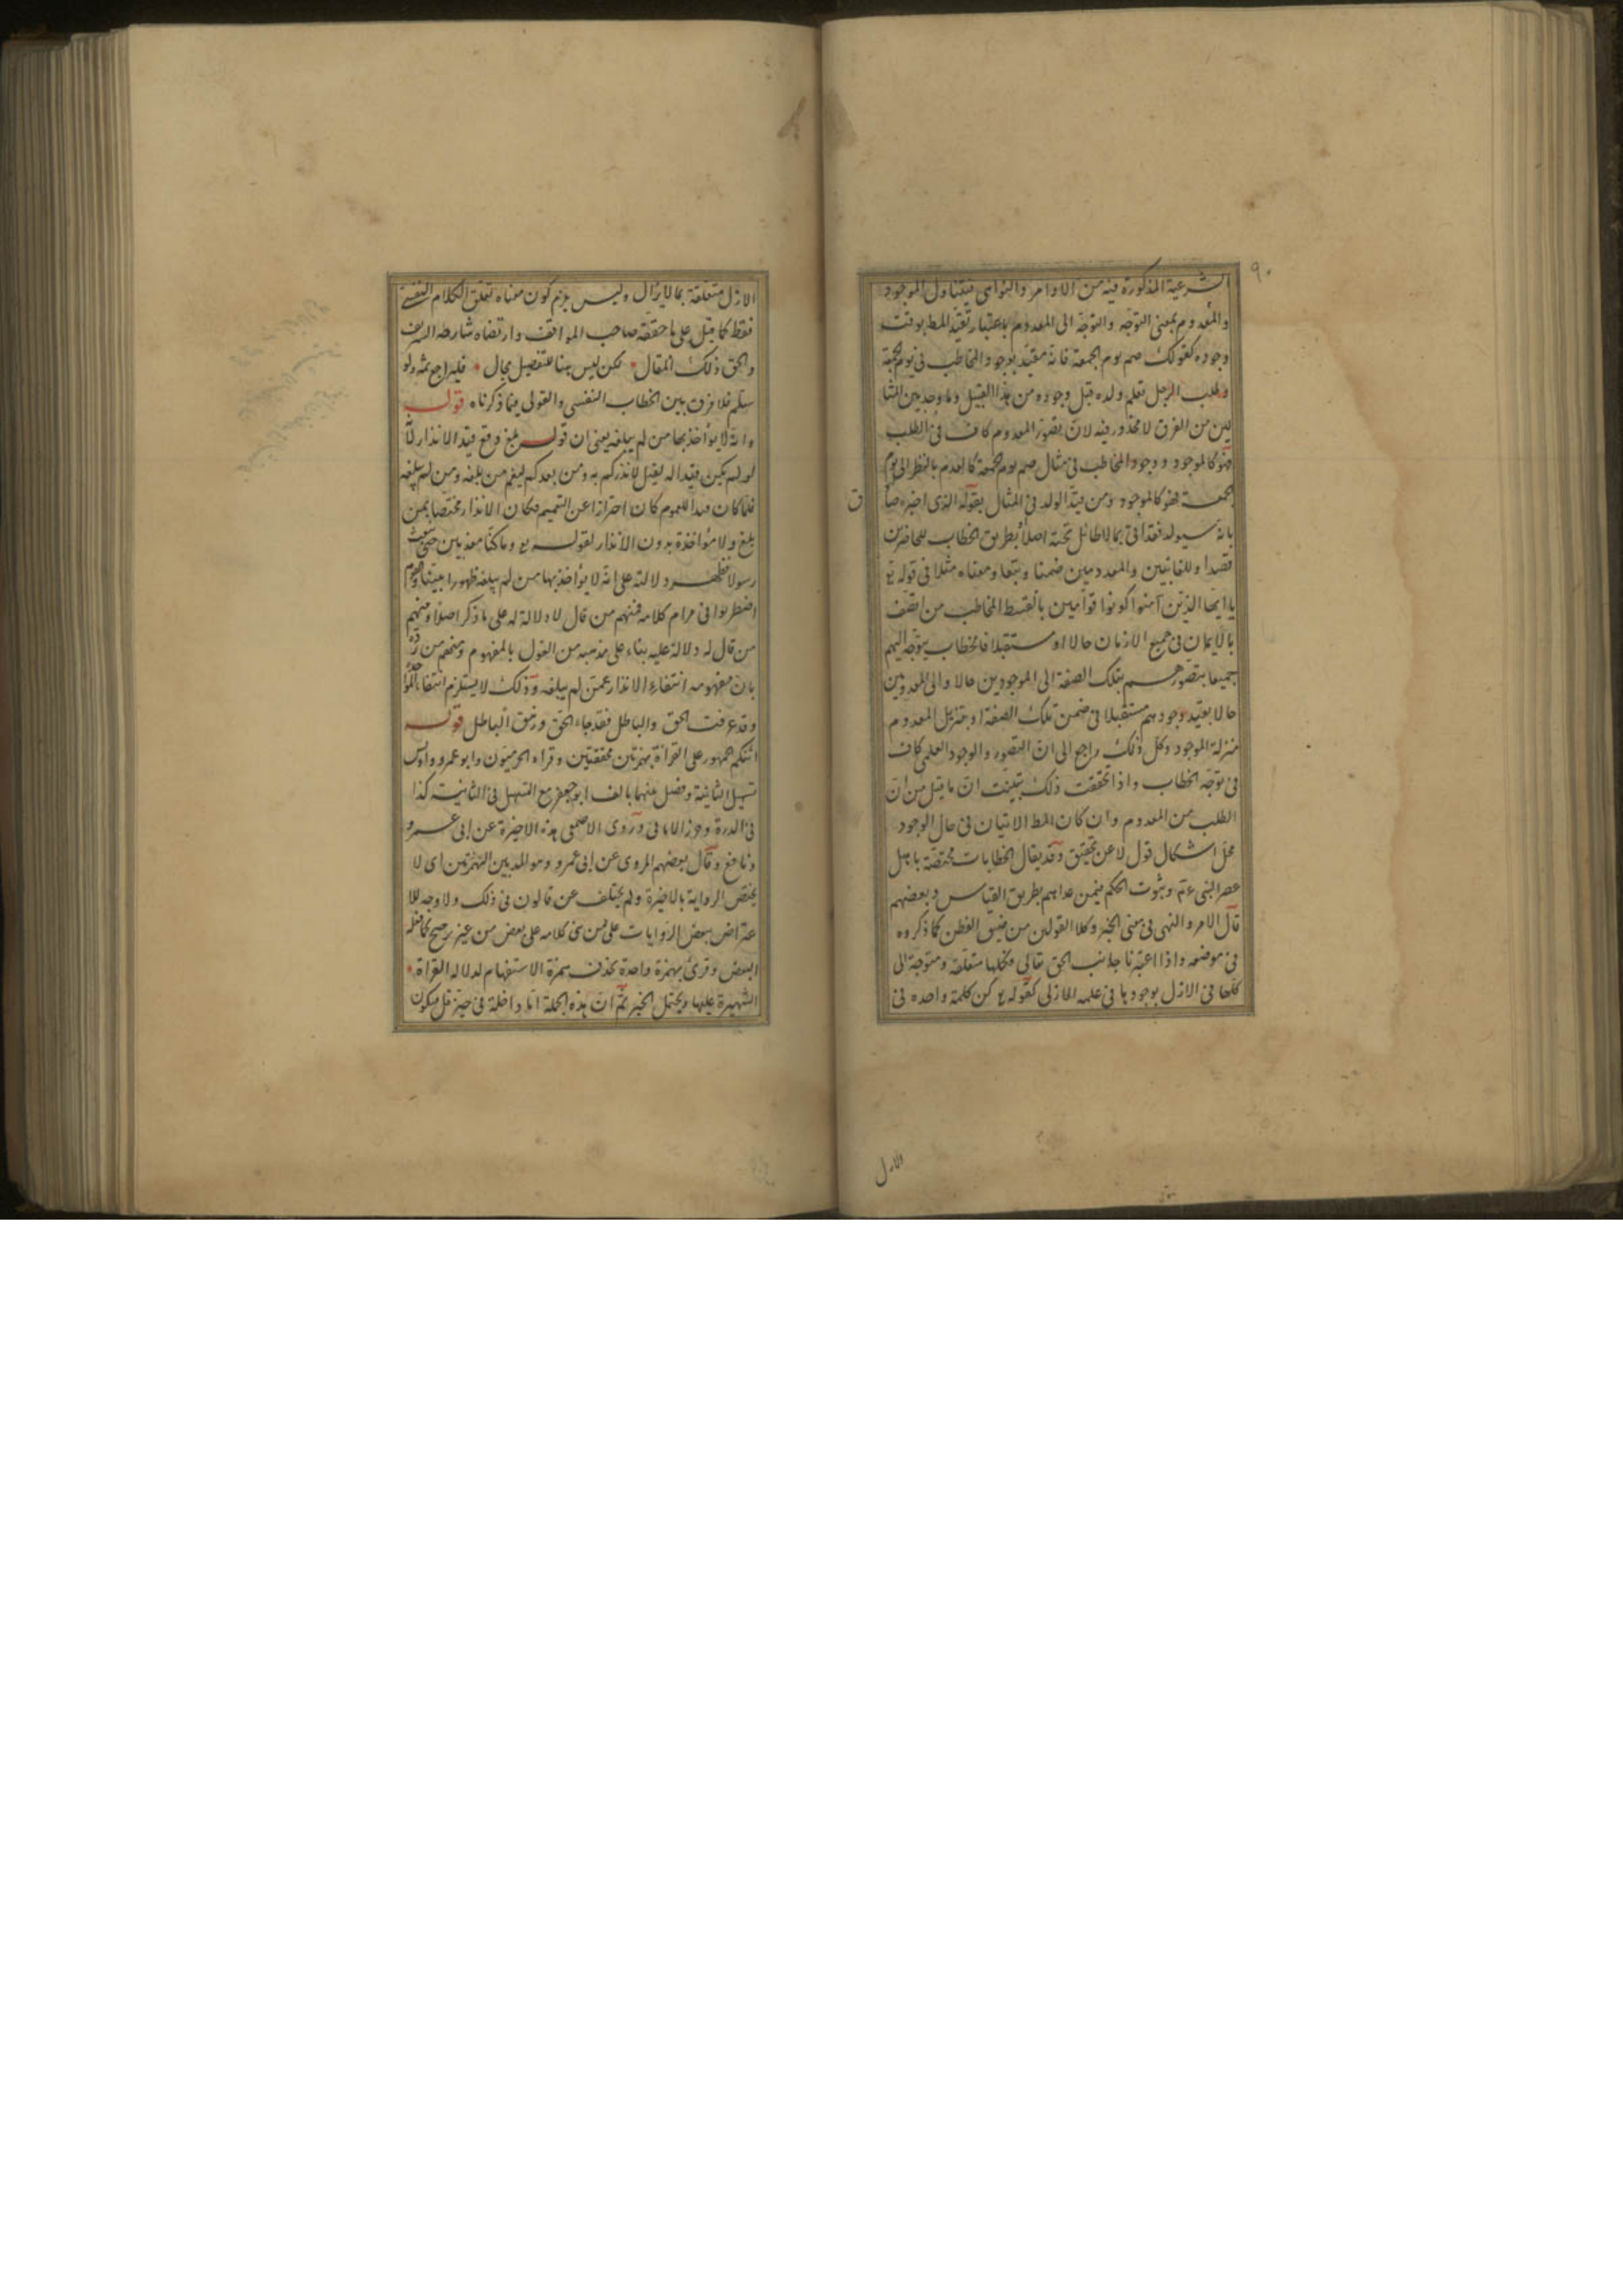 ٩٠
الشرعية المذكورة فيه من الاوامر والنواهى فيتناول الموجود
والمعدوم بمعنى التوجه والتوجه الى المعدوم باعتبار تقيد المط بوقت
وجوده كقولك صم يوم الجمعة فانه مقيد بوجود المخاطب فى يوم الجمعة
وطلب الرجل تعلم ولده قبل وجوده من هذا القبيل وما وجد بين المثا
لين من الفرق لا محذور فيه لان تصور المعدوم كاف فى الطلب
فهو كالموجود ووجود المخاطب فى مثال صم يوم الجمعة كالعدم بالنظر الى يوم
الجمعة فهو كالموجود ومن قيد الولد فى المثال بقوله الذى اخبره صا
ق
بانه سيولد فقد اتى بما لا طائل تحته اصلا بطريق الخطاب للحاضرين
قصدا وللغائبين والمعدومين ضمنا وتبعا ومعناه مثلا فى قوله تع
يا ايها الذين آمنوا كونوا قوامين بالقسط المخاطب من اتصف
بالايمان فى جميع الازمان حالا او مستقبلا فالخطاب يتوجه اليهم
جميعا بتصورهم بتلك الصفة الى الموجودين حالا والى المعدومين
حالا بقيد وجودهم مستقبلا فى ضمن تلك الصفة او بتنزيل المعدوم
منزلة الموجود وكل ذلك راجع الى ان التصور والوجود العلمى كاف
فى توجه الخطاب واذا تحققت ذلك تبينت ان ما قيل من ان
الطلب من المعدوم وان كان المط الاتيان فى حال الوجود
محل اشكال قول لا عن تحقيق وقد يقال الخطابات مختصة باهل
عصر النبى عم وثبوت الحكم فيمن عداهم بطريق القياس وبعضهم
قال الامر والنهى فى معنى الخبر وكلا القولين من ضيق العطن كما ذكروه
فى موضعه واذا اعتبرنا جانب الحق تعالى فكلها متعلقة ومتوجهة الى
كلها فى الازل بوجودها فى علمه الازلى كقوله تع كن كلمة واحدة فى
الازل
الازل متعلقة بما لا يزال وليس يلزم كون معناه تعلق الكلام النفسى
فقط كما قيل على ما حققه صاحب المواقف وارتضاه شارحه الشريف
والحق ذلك المقال لكن ليس هنا للتفصيل مجال فليراجع ثمه ولو
سلم فلا فرق بين الخطاب النفسى والقولى فيما ذكرناه قوله
وانه لا يؤاخذ بها من لم يبلغه يعنى ان قوله بلغ وقع قيد الانذار لا
لو لم يكن قيدا له لقيل لانذركم به ومن بعدكم ليعم من بلغه ومن لم يبلغه
فلما كان قيدا للعموم كان احترازا عن التعميم فكان الانذار مختصا بمن
بلغ ولا مؤاخذة بدون الانذار لقوله تع وما كنا معذبين حتى نبعث
رسولا فظهر دلالته على انه لا يؤاخذ بها من لم يبلغه ظهورا بينا والقوم
اضطربوا فى مرام كلامه فمنهم من قال لا دلالة له على ما ذكر اصلا ومنهم
من قال له دلالة عليه بناء على مذهبه من القول بالمفهوم ومنهم من رده
بان مفهومه انتفاء الانذار عمن لم يبلغه وذلك لا يستلزم انتفاء المؤاخذة
وقد عرفت الحق والباطل فقد جاء الحق وزهق الباطل قوله
ائنكم الجمهور على القراة بهمزتين محققتين وقراه الحرميون وابو عمرو واويس
تسهيل الثانية وفصل بينهما بالف ابو جعفر مع التسهيل فى الثانية كذا
فى الدرة وحرز الامانى وروى الاصمعى هذه الاخيرة عن ابى عمرو
ونافع وقال بعضهم المروى عن ابى عمرو وهو المد بين الهمزتين اى لا
يختص الرواية بالاخيرة ولم يختلف عن قالون فى ذلك ولا وجه للا
عتراض ببعض الروايات على من بنى كلامه على بعض من غير ترجيح كما فعله
البعض وقرئ بهمزة واحدة بحذف همزة الاستفهام لدلالة القراة
الشهيرة عليها ويحتمل الخبر ثم ان هذه الجملة اما داخلة فى حيز قل فيكون